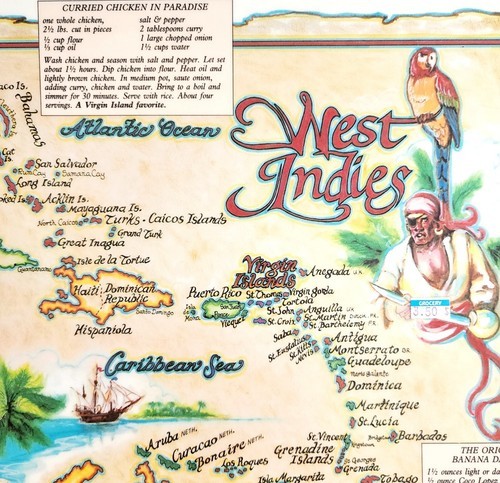 CURRIED CHICKEN IN PARADISE
one whole chicken,
2½ lbs. cut in pieces
½ cup flour
⅓ cup oil
salt & pepper
2 tablespoons curry
1 large chopped onion
1½ cups water
Wash chicken and season with salt and pepper. Let set
about 1½ hours. Dip chicken into flour. Heat oil and
lightly brown chicken. In medium pot, saute onion,
adding curry, chicken and water. Bring to a boil and
simmer for 30 minutes. Serve with rice. About four
servings. A Virgin Island favorite.
Atlantic Ocean
West
Indies
Bahamas
San Salvador
Rum Cay
Samana Cay
Long Island
Acklin Is.
Mayaguana Is.
North Caicos
Turks - Caicos Islands
Grand Turk
Great Inagua
Isle de la Tortue
Guantanamo
Haiti
Dominican
Republic
Santo Domingo
Hispaniola
Virgin
Islands
Anegada U.K.
Puerto Rico
St. Thomas
Virgin Gorda
Tortola
St. John
Anguilla U.K.
St. Martin DUTCH, FR.
St. Croix
St. Barthelemy FR.
Isla
Mona
Vieques
Saba
St. Eustatius
St. Kitts
Nevis
Antigua
Montserrato BR.
Guadeloupe
Marie Galante
Dominica
Caribbean Sea
Martinique
St. Lucia
St. Vincent
Barbados
Grenadine
Islands
St. Georges
Grenada
Aruba NETH.
Curacao NETH.
Bonaire NETH.
Los Roques
Isla Margarita
Tobado
GROCERY
3.50
THE ORIG
BANANA DA
1½ ounces light or da
½ ounce Coco Lopez